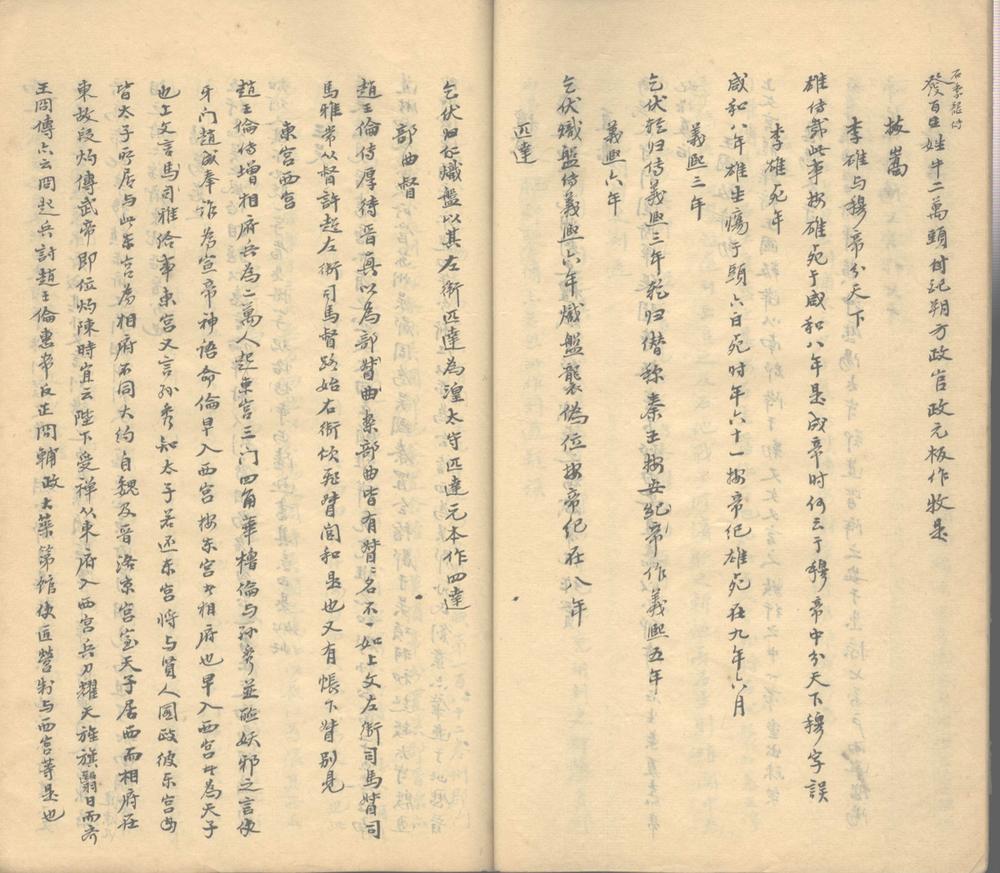 石季龍傳
發百姓牛二萬頭付記朔方政官政元板作牧是
故嵩
李雄与穆帝分天下
雄傳鄙此事按雄死于咸和八年是成帝时何云于穆帝中分天下穆字誤
李雄死年
咸和八年雄生瘍于頭六日死时年六十一按帝纪雄死在九年六月
義熙三年
乞伏乾归傳義熙三年乾归僭称秦王按安纪帝作義熙五年
義熙六年
乞伏熾盤傳義熙六年熾盤襲偽位按帝纪在八年
匹達
乞伏归传熾盤以其左衛匹達為湟太守匹達元本作四達
部曲督
趙王倫传厚待晋真以為部曲督部曲皆有督名不一如上文左衛司馬督司
馬雅常从督許超左衛司馬督路始右衛佽飛督閭和是也又有帳下督别見
東宫西宫
趙王倫传增相府兵為二萬人起東宫三门四角華櫓倫与孙秀並惑妖邪之言使
牙门趙奉诈為宣帝神语命倫早入西宫按东宫者相府也早入西宫者為天子
也上文言馬司雅给事東宫又言孙秀知太子若还东宫将与賢人图政彼东宫由
皆太子所居与此东宫為相府不同大约自魏及晋洛京宫室天子居西而相府在
東故段灼傳武帝即位灼陳時宜云陛下受禅从東府入西宫兵刀耀天旌旗翳日而齐
王冏傳亦云冏起兵討趙王倫惠帝反正冏輔政大築第館使匠營制与西宫等是也